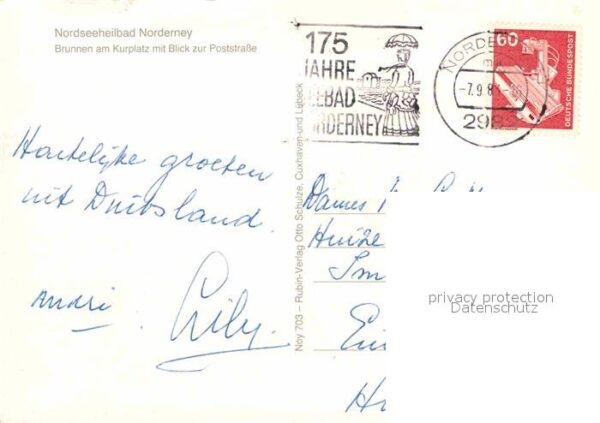 Nordseeheilbad Norderney
Brunnen am Kurplatz mit Blick zur Poststraße
175
JAHRE
EEBAD
RDERNEY
NORDE
-7.9.8
2982
60
DEUTSCHE BUNDESPOST
Hartelijke groeten
uit Duitsland.
Andri Lily.
Noy 703 – Rubin-Verlag Otto Schulze, Cuxhaven und Lübeck
Dames
Huize
Sm
Ein
H
privacy protection
Datenschutz